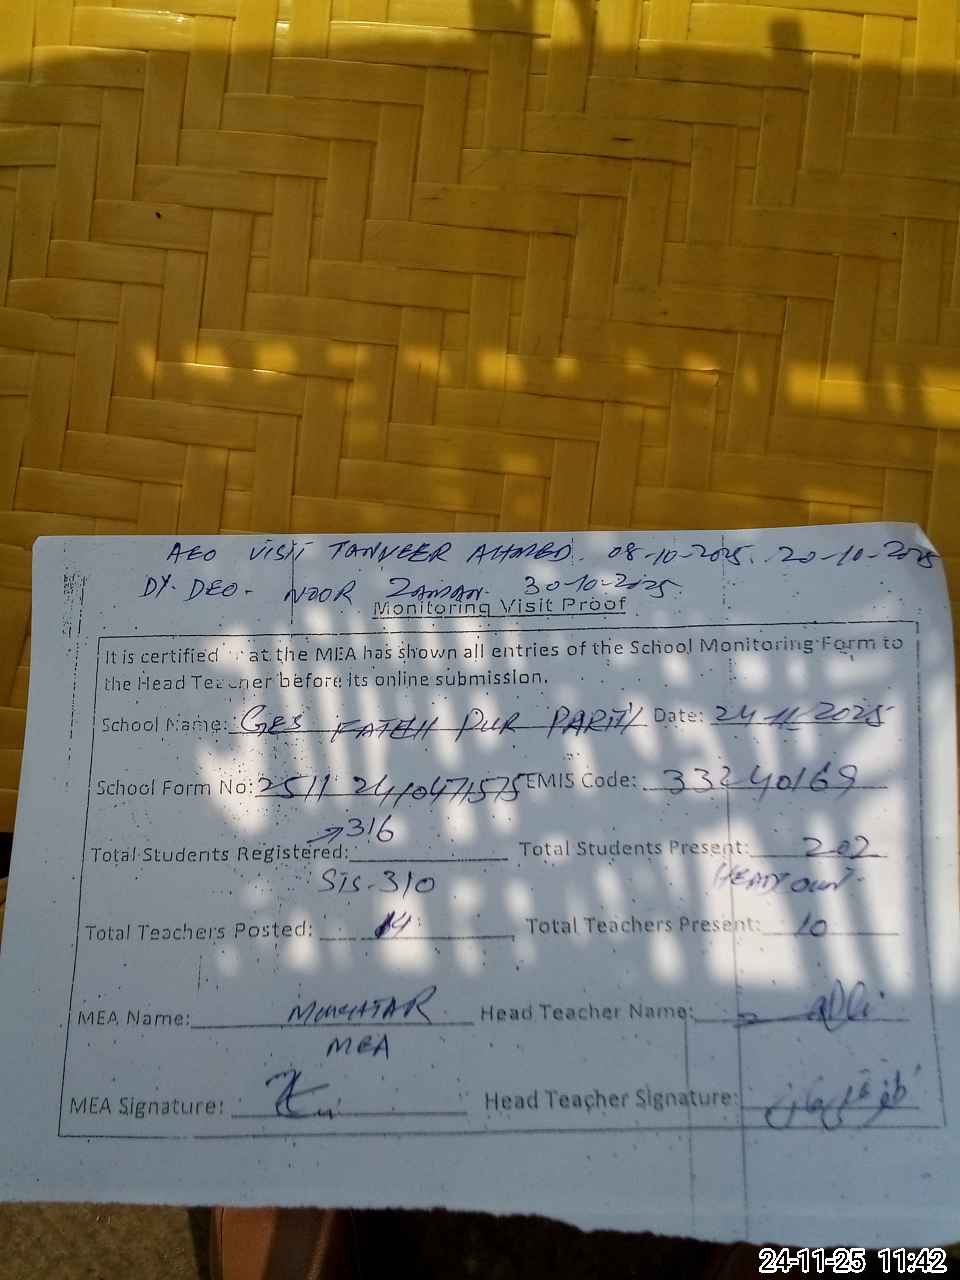 AEO VISIT TANVEER AHMED. 08-10-2025. 20-10-2025
DY. DEO. NOOR ZAMAN. 30-10-2025.
Monitoring Visit Proof
It is certified at the MEA has shown all entries of the School Monitoring Form to
the Head Teacher before its online submission.
School Name: GES FATEH PUR PARITY Date: 24-11-2025
School Form No: 2511 2410471575 EMIS Code: 33240169
316
Total Students Registered: Total Students Present: 202
SIS-310 HEADCOUNT
Total Teachers Posted: 14 Total Teachers Present: 10
MEA Name: MUKHTAR Head Teacher Name:
MEA
MEA Signature: Head Teacher Signature:
24-11-25 11:42